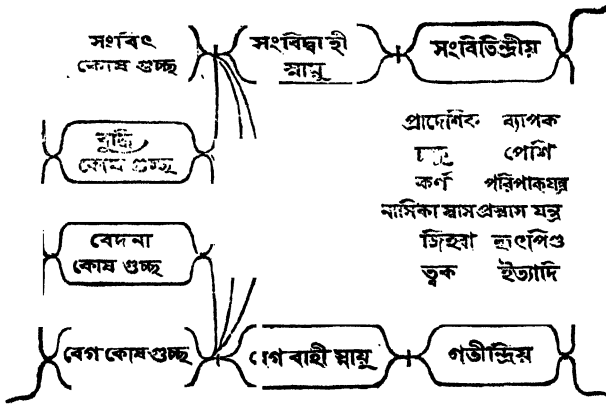 সংবিৎ
কোষ গুচ্ছ
সংবিদ্বাহী
স্নায়ু
সংবিতিন্দ্রীয়
প্রাদেশিক ব্যাপক
চক্ষু পেশি
কর্ণ পরিপাকযন্ত্র
নাসিকা শ্বাসপ্রশ্বাস যন্ত্র
জিহ্বা হৃৎপিণ্ড
ত্বক ইত্যাদি
বুদ্ধি
কোষ গুচ্ছ
বেদনা
কোষ গুচ্ছ
বেগ কোষ গুচ্ছ
বেগ বাহী স্নায়ু
গতীন্দ্রিয়